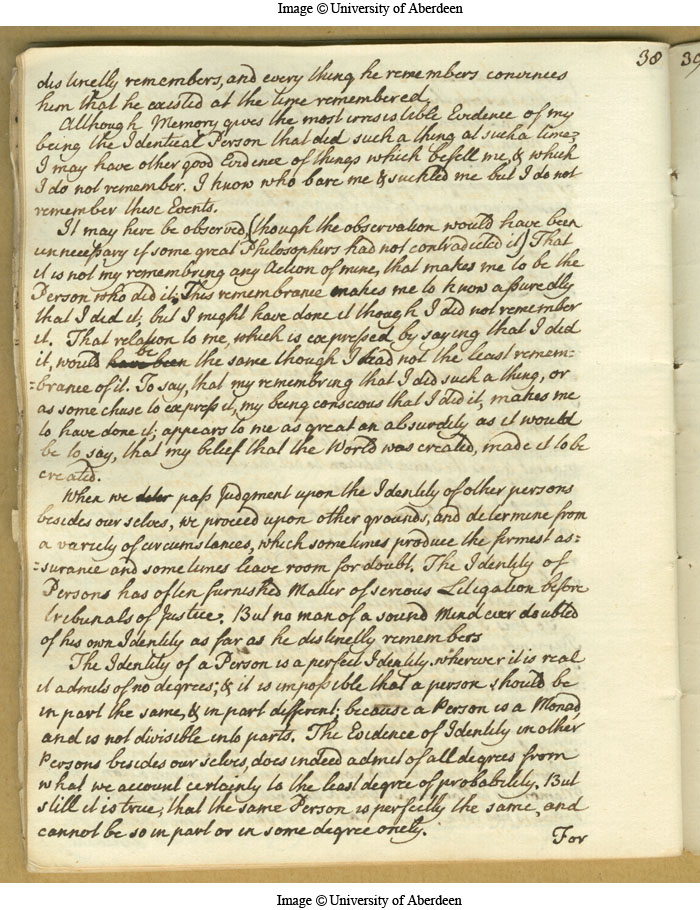 Image © University of Aberdeen
38
39
distinctly remembers, and every thing he remembers convinces
him that he existed at the time remembered.
Although Memory gives the most irresistible Evidence of my
being the Identical Person that did such a thing at such a time;
I may have other good Evidence of things which befell me, & which
I do not remember. I know who bare me & suckled me but I do not
remember these Events.
It may here be observed, (though the observation would have been
unnecessary if some great Philosophers had not contradicted it) That
it is not my remembring any Action of mine, that makes me to be the
Person who did it. This remembrance makes me to know assuredly
that I did it; but I might have done it though I did not remember
it. That relation to me, which is expressed by saying that I did
it, would have been be the same though I had not the least remem=
=brance of it. To say, that my remembring that I did such a thing, or
as some chuse to express it, my being conscious that I did it, makes me
to have done it; appears to me as great an absurdity as it would
be to say, that my belief that the World was created, made it to be
created.
When we pass Judgment upon the Identity of other persons
besides our selves, we proceed upon other grounds, and determine from
a variety of circumstances, which sometimes produce the firmest as=
=surance and sometimes leave room for doubt. The Identity of
Persons has often furnished Matter of serious Litigation before
tribunals of Justice. But no man of a sound Mind ever doubted
of his own Identity as far as he distinctly remembers
The Identity of a Person is a perfect Identity. wherever it is real
it admits of no degrees; & it is impossible that a person should be
in part the same, & in part different; because a Person is a Monad
and is not divisible into parts. The Evidence of Identity in other
Persons besides our selves, does indeed admit of all degrees from
what we account certainty to the least degree of probability. But
still it is true, that the same Person is perfectly the same, and
cannot be so in part or in some degree onely.
For
Image © University of Aberdeen